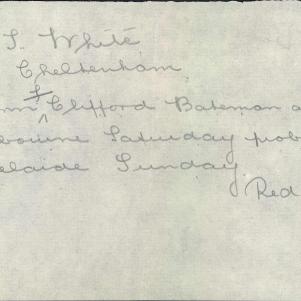 S. White
Cheltenham
F
Clifford Bateman a
bourne Saturday prob
elaide Sunday
Red